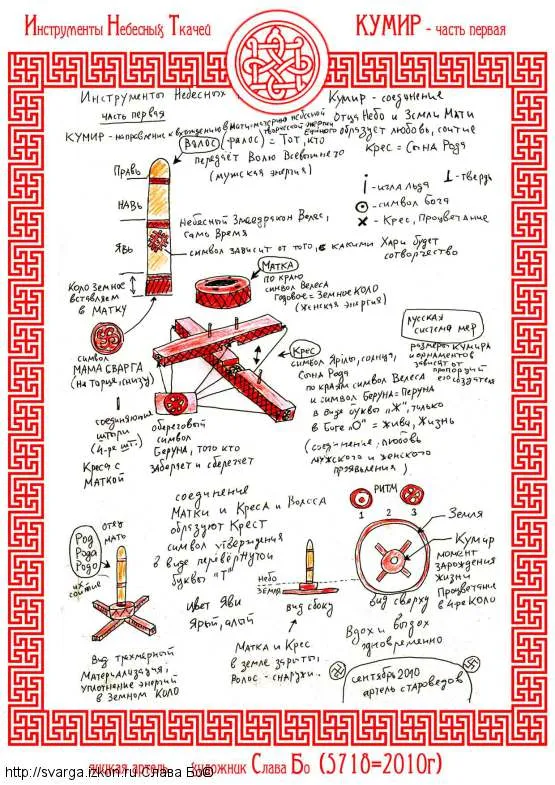 Инструменты Небесных Ткачей
КУМИР - часть первая
Инструменты Небесных
часть первая
Кумир - соединение
Отца Небо и Земли Мати
образует любовь, соитие
Крес = Сына Рода
КУМИР - направление к
Волос (фалос) = Тот, кто
передаёт Волю Всевышнего
(мужская энергия)
Правь
Навь
Явь
- игла льда
- твердь
- символ Бога
- Крес, Процветание
Небесный Змеедракон Велес,
гамь Время
символ зависит от того, с какими Хари будет
сотворчество
Коло Земное
вставляем
в Матку
Матка
по краю
символ Велеса
Годовое = Земное Коло
(женская энергия)
русская
система мер
размеры Кумира
и орнаментов
зависит от
пропорций
его создателя
символ
МАМА СВАРГА
(на торце, снизу)
Крес
символ Ярилы, солнца,
Сына Рода
по краям символ Велеса
и символ Беруна = Перуна
в виде буквы "Ж", только
в Боге "О" = Жива, Жизнь
(соединение, любовь
мужского и женского
проявления)
соединяющие
штыри
(4-ре шт.)
Креса с
Маткой
обереговый
символ
Беруна, того кто
заберает и сберегает
соединение
Матки и Креса и Волоса
образуют Крест
символ утверждения
в виде перевёрнутой
буквы "Т"
РИТМ
1 2 3
Земля
Кумир
момент
зарождения
жизни
Процветание
в 4-ре Коло
Род
Рода
Родо
отец
мать
их
соитие
небо
земля
вид сбоку
вид сверху
Цвет Яви
Ярый, алый
Вдох и выдох
одновременно
Вид трёхмерный
Материализация,
уплотнение энергий
в Земном Коло
Матка и Крес
в земле зарыты,
Волос - снаружи.
сентябрь 2010
артель староведов
художник Слава Бо (5718=2010г)
http://svarga.izkon.ru/Слава Бо©